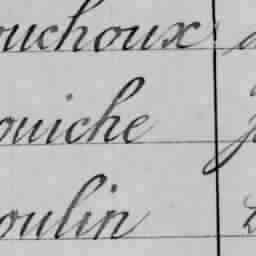 ouchoux
ouiche
oulin